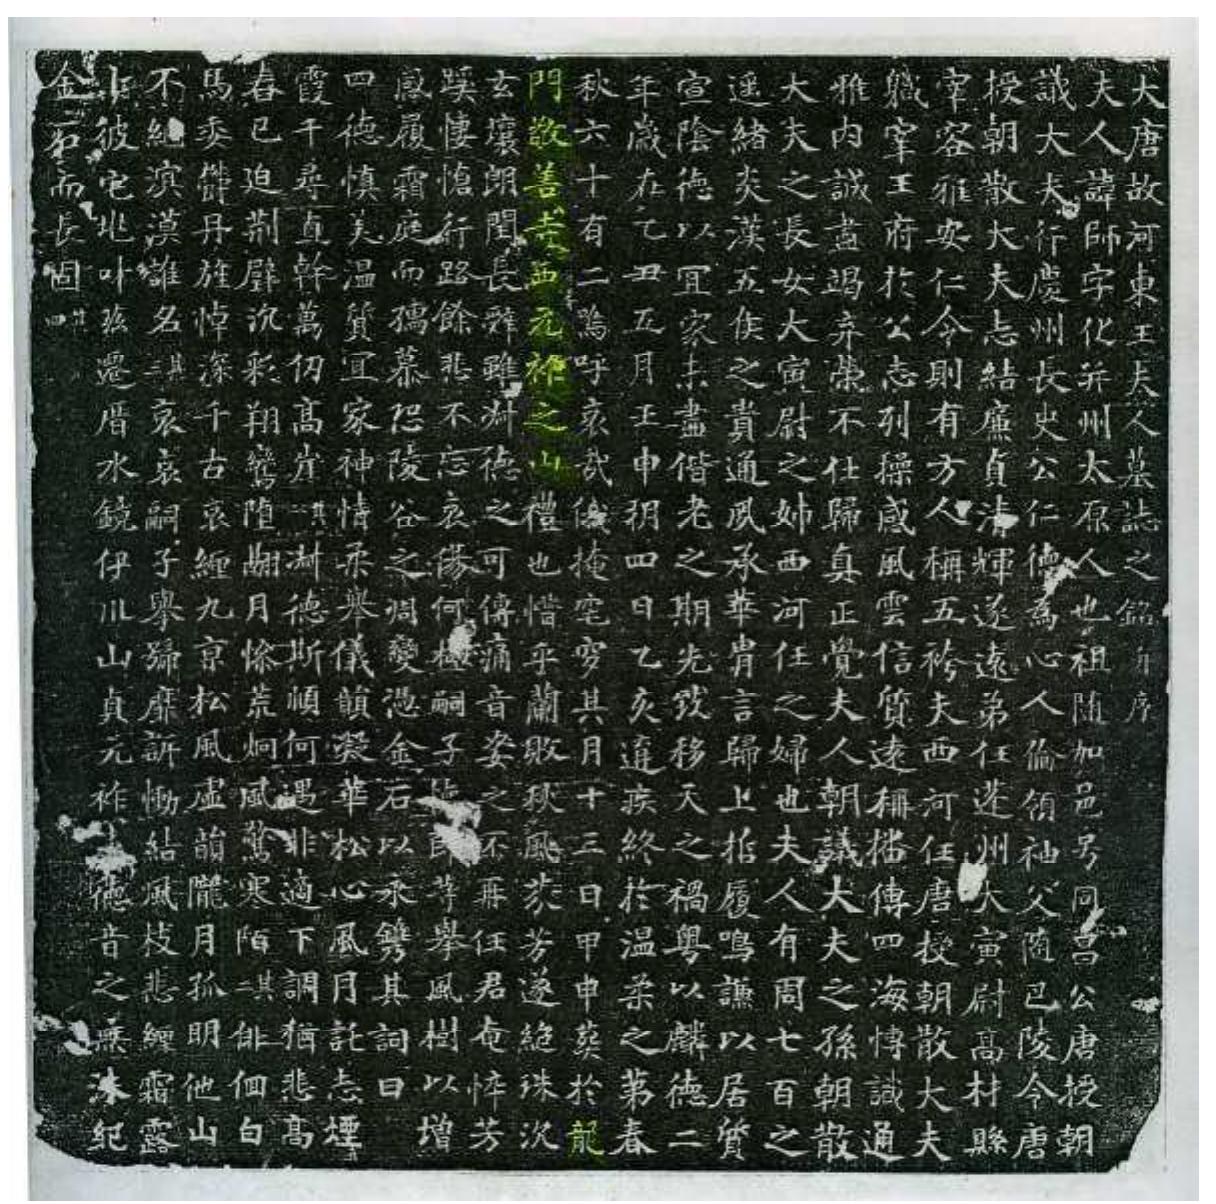 大唐故河東王夫人墓誌之銘并序
夫人諱師字化并州太原人也祖隨加邑号同昌公唐授朝
議大夫行慶州長史公仁德為心人倫領袖父隨巴陵令唐
授朝散大夫志結廉貞清輝遂遠弟任蓬州大寅尉高村縣
宰容雅安仁今則有方人稱五袴夫西河任唐授朝散大夫
職宰王府於公志列操感風雲信質遠稱播傳四海愽識通
雅內誠盡竭弃榮不仕歸真正覺夫人朝議大夫之孫朝散
大夫之長女大寅尉之姉西河任之婦也夫人有周七百之
遥緒炎漢五侯之貴通夙承華胄言歸上哲履鳴謙以居質
宣陰德以宜家未盡偕老之期先銳移天之禍粤以麟德二
年歲在乙丑五月壬申朔四日乙亥遘疾終於温柔之第春
秋六十有二嗚呼哀哉俄掩窀穸其月十三日甲申葬於龍
門敬善寺西元祚之山禮也惜乎蘭敗秋風茶芳遂絕珠沉
玄壤朗閏長辤雖淑德之可傳痛音姿之不再任君奄悴芳
蹊悽愴行路餘悲不忘哀傷何極嗣子 等舉風樹以增
感履霜庭而孺慕恐陵谷之凋變憑金石以永鐫其詞曰
四德慎美温質宜家神情柔舉儀韻凝華松心風月託志煙
霞千尋直幹萬仞高岸其一淑德斯順何遇非適下調猶悲高
春已迫荆璧沉彩翔鸞墮翮月慘荒炯風驚寒陌其二俳佪白
馬委欝丹旌悼深千古哀纏九京松風虛韻隴月孤明他山
不紀溟漠誰名其三哀哀嗣子舉號靡訴慟結風枝悲纏霜露
卜彼宅兆叶茲遷厝水鏡伊川山貞元祚 德音之無沬紀
金石而長固其四